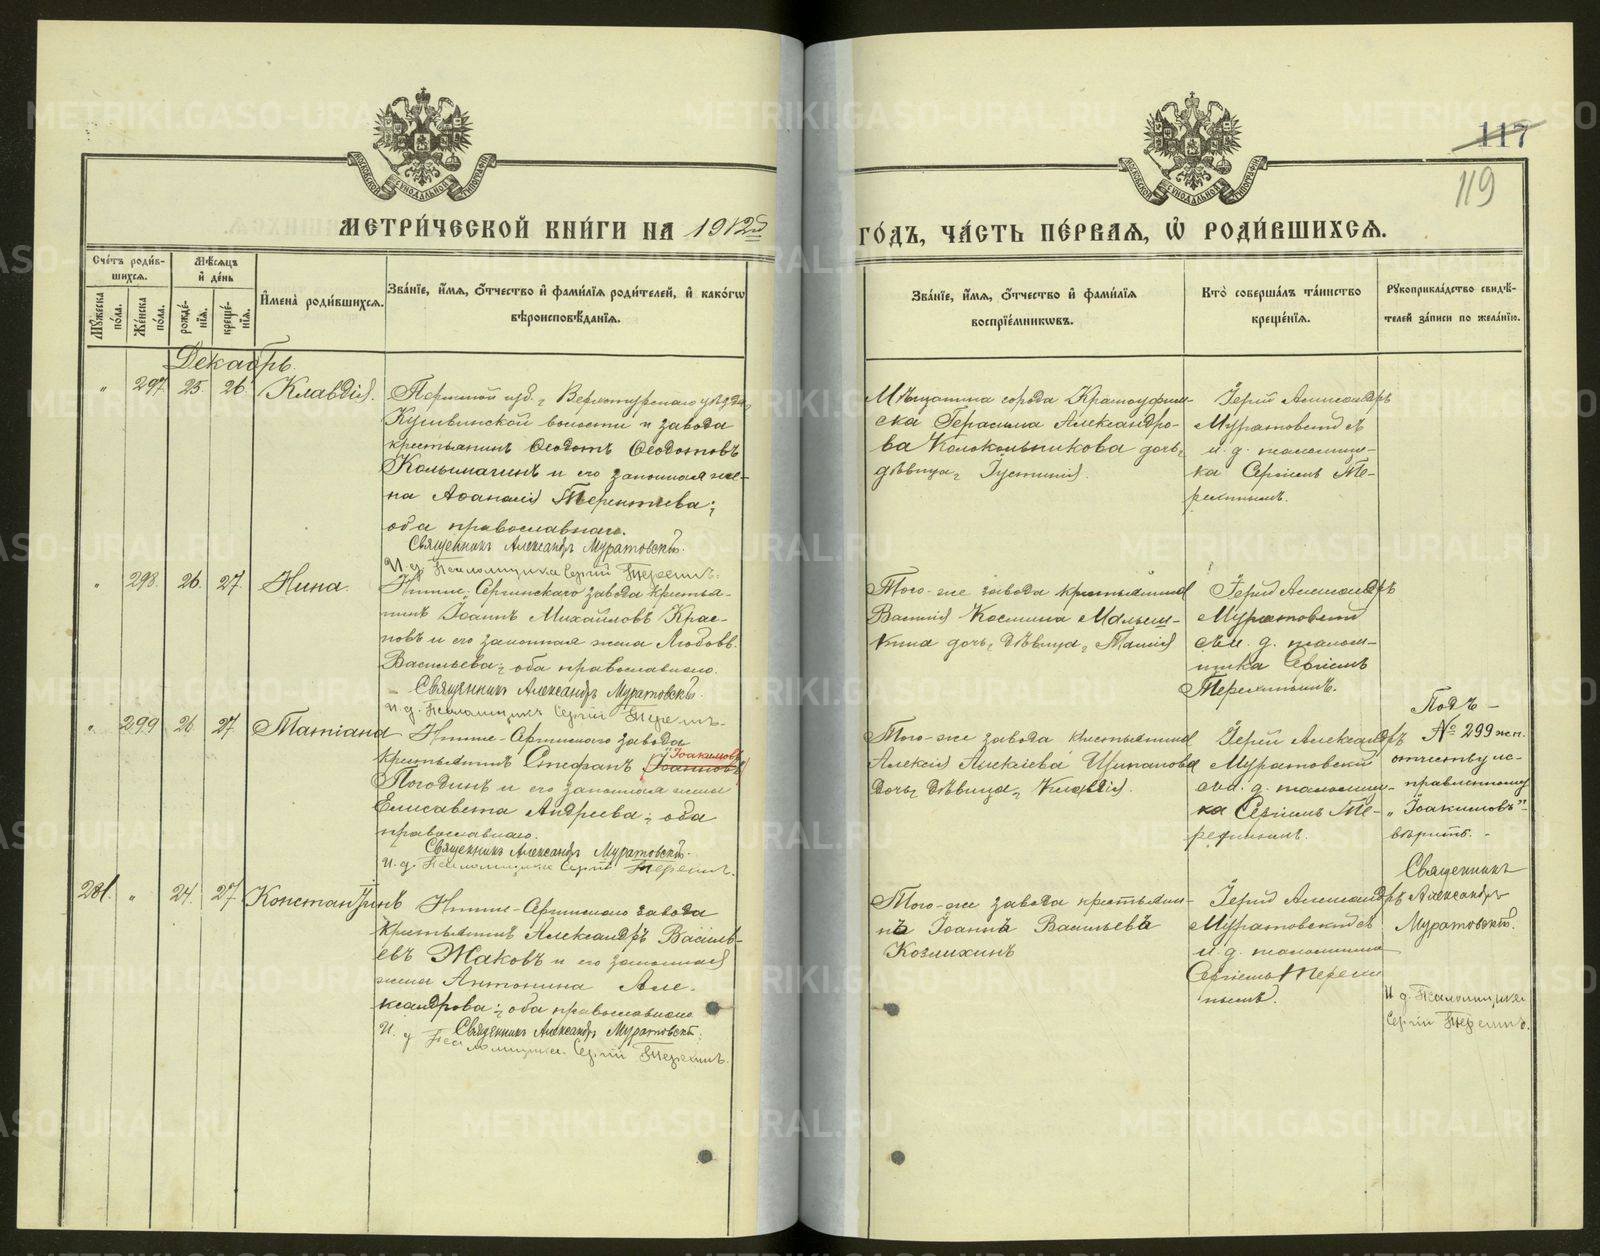 117
119
МЕТРИ́ЧЕСКОЙ КНИ́ГИ НА 1912й
ГО́ДЪ, ЧА́СТЬ ПЕ́РВАѦ, Ѡ҆ РОДИ́ВШИХСѦ.
Сче́тъ роди́в-
шихсѧ.
Мужеска по́ла.
Же́нска по́ла.
Мѣ́сѧцъ
и҆ де́нь
рожде́-
нїѧ.
креще́-
нїѧ.
И҆мена̀ роди́вшихсѧ.
Зва́нїе, и҆́мѧ, ѻ҆́тчество и҆ фами́лїѧ роди́телей, и҆ како́гѡ
вѣроисповѣ́данїѧ.
Зва́нїе, и҆́мѧ, ѻ҆́тчество и҆ фами́лїѧ
воспрїе́мникѡвъ.
Кто̀ соверша́лъ та́инство
креще́нїѧ.
Рꙋкоприкла́дство свидѣ́-
телей за́писи по жела́нїю.
Декабрь.
" 297 25. 26. Клавдія.
Пермской губ., Верхотурскаго уѣзда,
Кушвинской волости и завода
крестьянинъ Ѳеодотъ Ѳеодотовъ
Колымагинъ и его законная же-
на Аѳанасія Терентьева;
оба православнаго.
Священникъ Александръ Муратовскій.
И. д. Псаломщика Сергій Терехинъ.
Мѣщанина города Красноуфим-
ска Герасима Александро-
ва Колокольникова дочь,
дѣвица, Іустинія.
Іерей Александръ
Муратовскій съ
и. д. псаломщи-
ка Сергіемъ Те-
рехинымъ.
" 298. 26. 27. Нина.
Нижне-Сергинскаго завода крестья-
нинъ Іоаннъ Михайловъ Крас-
новъ и его законная жена Любовь
Васильева; оба православнаго.
Священникъ Александръ Муратовскій.
И. д. Псаломщика Сергій Терехинъ.
Того-же завода крестьянина
Василія Космина
дочь, дѣвица, Таисія
Іерей Александръ
Муратовскій
съ и. д. псалом-
щика Сергіемъ
Терехинымъ.
" 299 26. 27 Татіана
Нижне-Сергинскаго завода
крестьянинъ Стефанъ (Іоанновъ) "Іоакимовъ"
Погодинъ и его законная жена
Елисавета Андреева; оба
православнаго.
Священникъ Александръ Муратовскій.
И. д. Псаломщика Сергій Терехинъ.
Того-же завода крестьянина
Алексія Алексіева Щипанова
дочь, дѣвица, Клавдія.
Іерей Александръ
Муратовскій
съ и. д. псаломщи-
ка Сергіемъ Те-
рехинымъ.
Подъ –
№ 299 жен.
отчеству ис-
правленному
„Іоакимовъ"–
вѣрить. –
Священникъ
Александръ
Муратовскій.
И. д. Псаломщика
Сергій Терехинъ.
281. " 24. 27 Константинъ
Нижне-Сергинскаго завода
крестьянинъ Александръ Василь-
евъ Жаковъ и его законная
жена Антонина Але-
ксандрова; оба православнаго
Священникъ Александръ Муратовскій.
И. д. Псаломщика Сергій Терехинъ.
Того-же завода крестьяни-
нъ Іоаннъ Васильевъ
Козлихинъ
Іерей Александръ
Муратовскій съ
и. д. псаломщика
Сергіемъ Терехи-
нымъ.